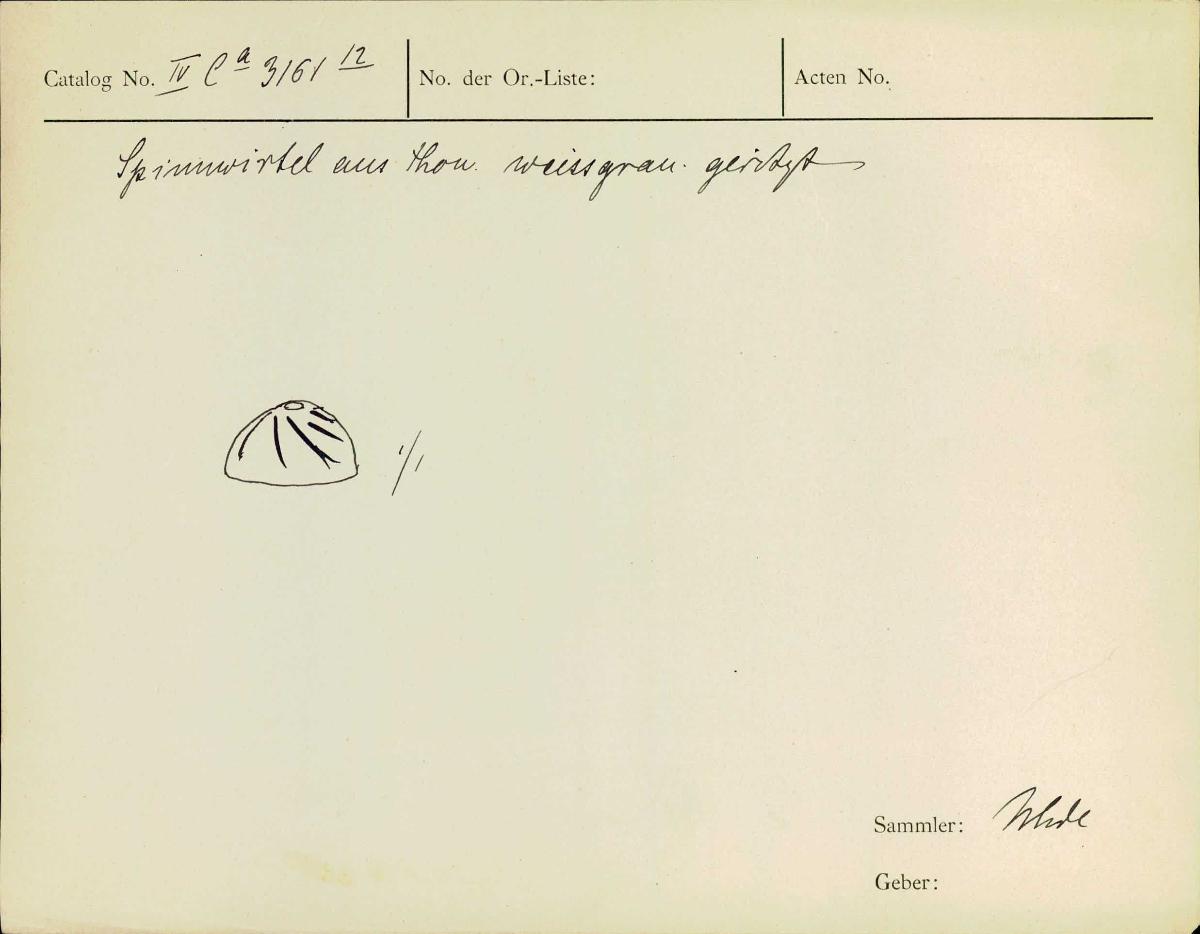 Catalog No. IV Ca 3161 12 No. der Or.-Liste: Acten No.
Spinnwirtel aus Thon. weissgrau. geritzt
1/1
Sammler: Uhde
Geber: